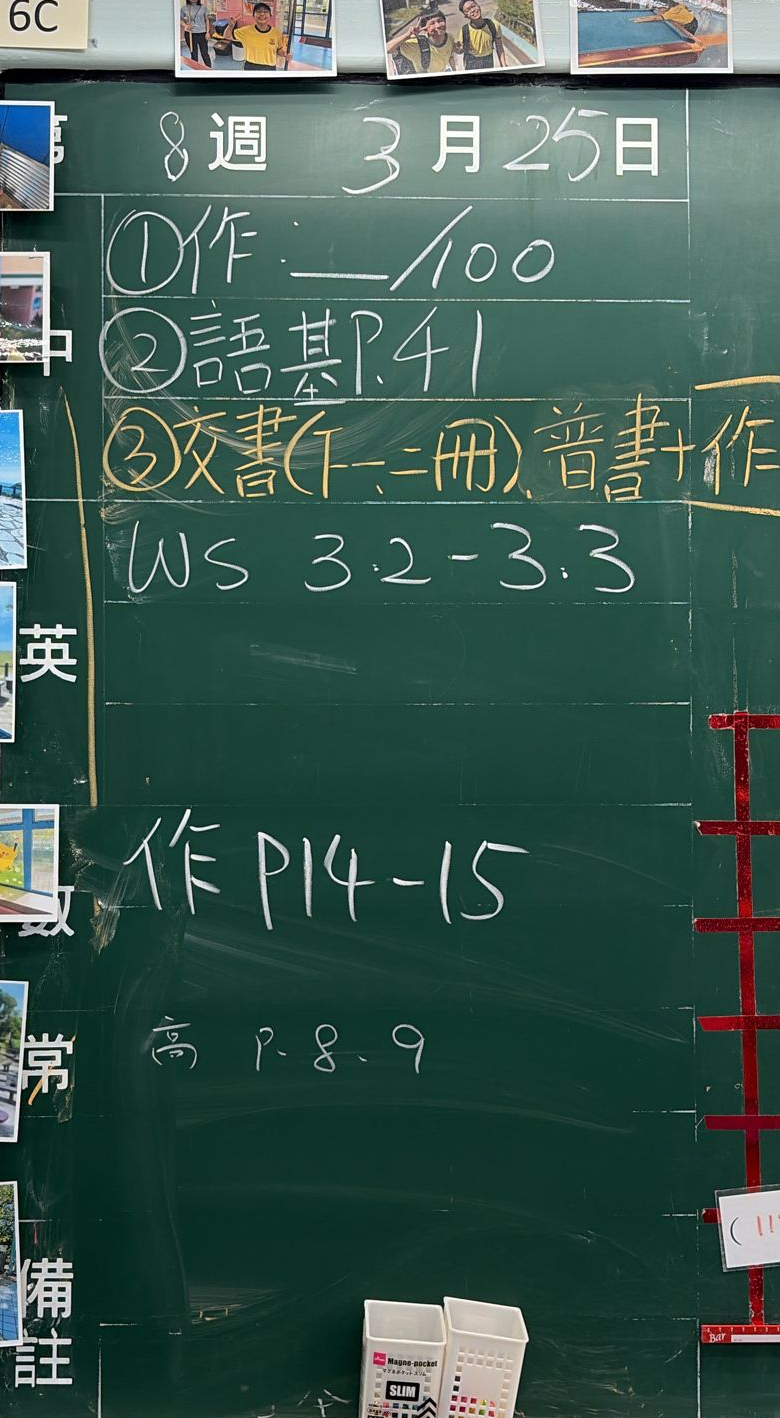 6C
第 8 週 3 月 25 日
中
①作:__/100
②語基P.41
③交書(下一、二冊)、普書+作
英
WS 3.2-3.3
數
作 P14-15
常
高 P.8、9
備註
Magno-pocket
SLIM
Bar